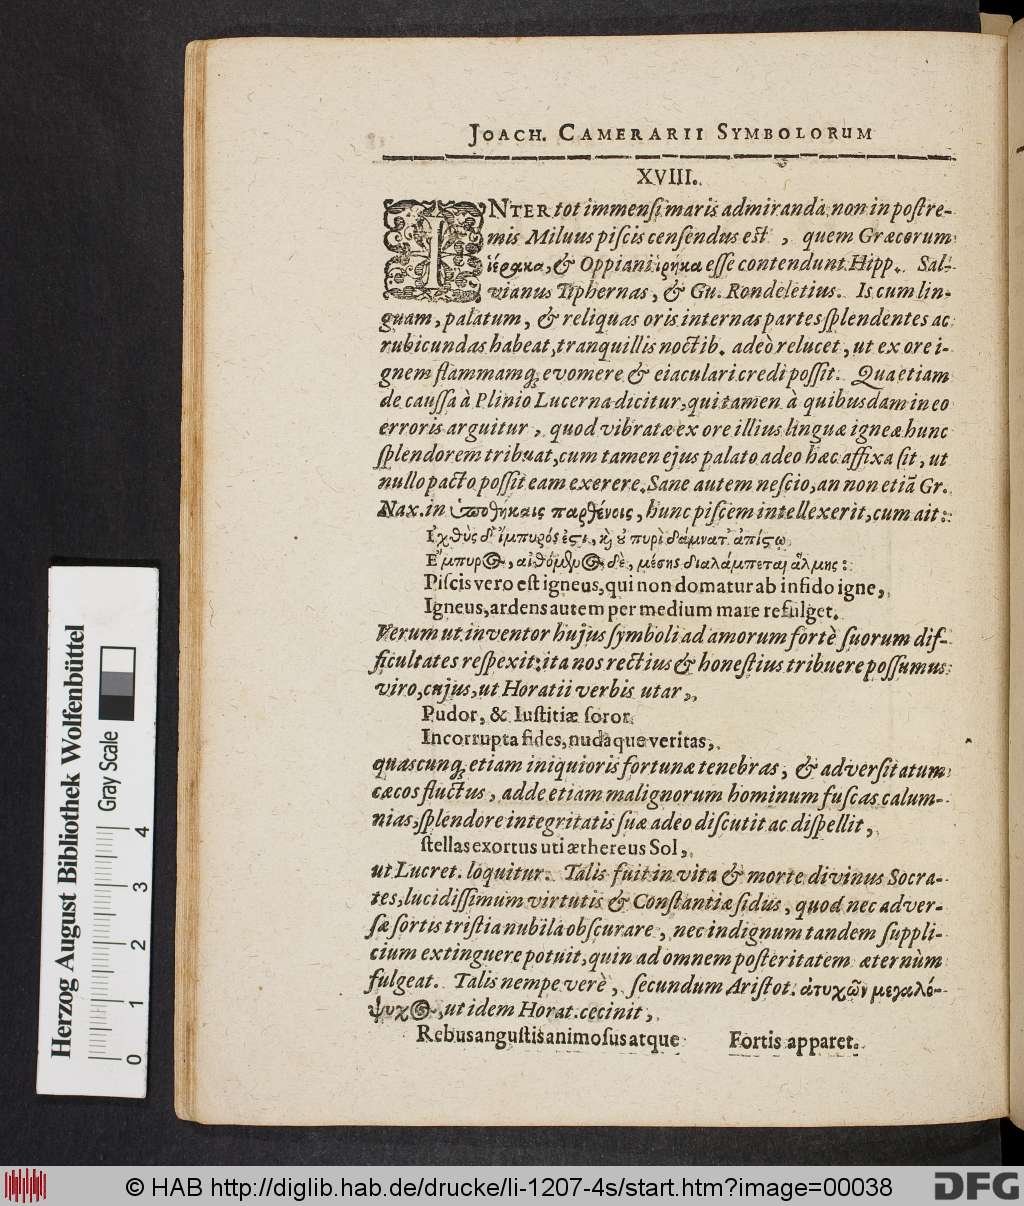 JOACH. CAMERARII SYMBOLORUM
XVIII.
INTER tot immensi maris admiranda non in postre-
mis Miluus piscis censendus est, quem Græcorum
ἱέρακα, & Oppiani ἴρηκα esse contendunt Hipp. Sal-
vianus Tiphernas, & Gu. Rondeletius. Is cum lin-
guam, palatum, & reliquas oris internas partes splendentes ac
rubicundas habeat, tranquillis noctib. adeò relucet, ut ex ore i-
gnem flammamq; evomere & eiaculari credi possit. Qua etiam
de caussa à Plinio Lucerna dicitur, qui tamen à quibusdam in eo
erroris arguitur, quod vibratæ ex ore illius linguæ igneæ hunc
splendorem tribuat, cum tamen ejus palato adeo hæc affixa sit, ut
nullo pacto possit eam exerere. Sane autem nescio, an non etiã Gr.
Nax. in ὑποθήκαις παρθένοις, hunc piscem intellexerit, cum ait:
Ἰχθὺς δ' ἔμπυρός ἐστι, καὶ οὐ πυρὶ δάμνατ' ἀπίστῳ,
Ἔμπυρος, αἰθόμενος δὲ, μέσης διαλάμπεται ἅλμης:
Piscis vero est igneus, qui non domatur ab infido igne,
Igneus, ardens autem per medium mare refulget.
Verum ut inventor hujus symboli ad amorum fortè suorum dif-
ficultates respexit: ita nos rectius & honestius tribuere possumus
viro, cujus, ut Horatii verbis utar,
Pudor, & Iustitiæ soror
Incorrupta fides, nudaque veritas,
quascunq; etiam iniquioris fortunæ tenebras, & adversitatum
cæcos fluctus, adde etiam malignorum hominum fuscas calum-
nias, splendore integritatis suæ adeo discutit ac dispellit,
stellas exortus uti æthereus Sol,
ut Lucret. loquitur. Talis fuit in vita & morte divinus Socra-
tes, lucidissimum virtutis & Constantiæ sidus, quod nec adver-
sæ sortis tristia nubila obscurare, nec indignum tandem suppli-
cium extinguere potuit, quin ad omnem posteritatem æternùm
fulgeat. Talis nempe verè, secundum Aristot. ἀτυχῶν μεγαλό-
ψυχος, ut idem Horat. cecinit,
Rebus angustis animosus atque Fortis apparet.
Herzog August Bibliothek Wolfenbüttel
Gray Scale
0 1 2 3 4
© HAB http://diglib.hab.de/drucke/li-1207-4s/start.htm?image=00038
DFG